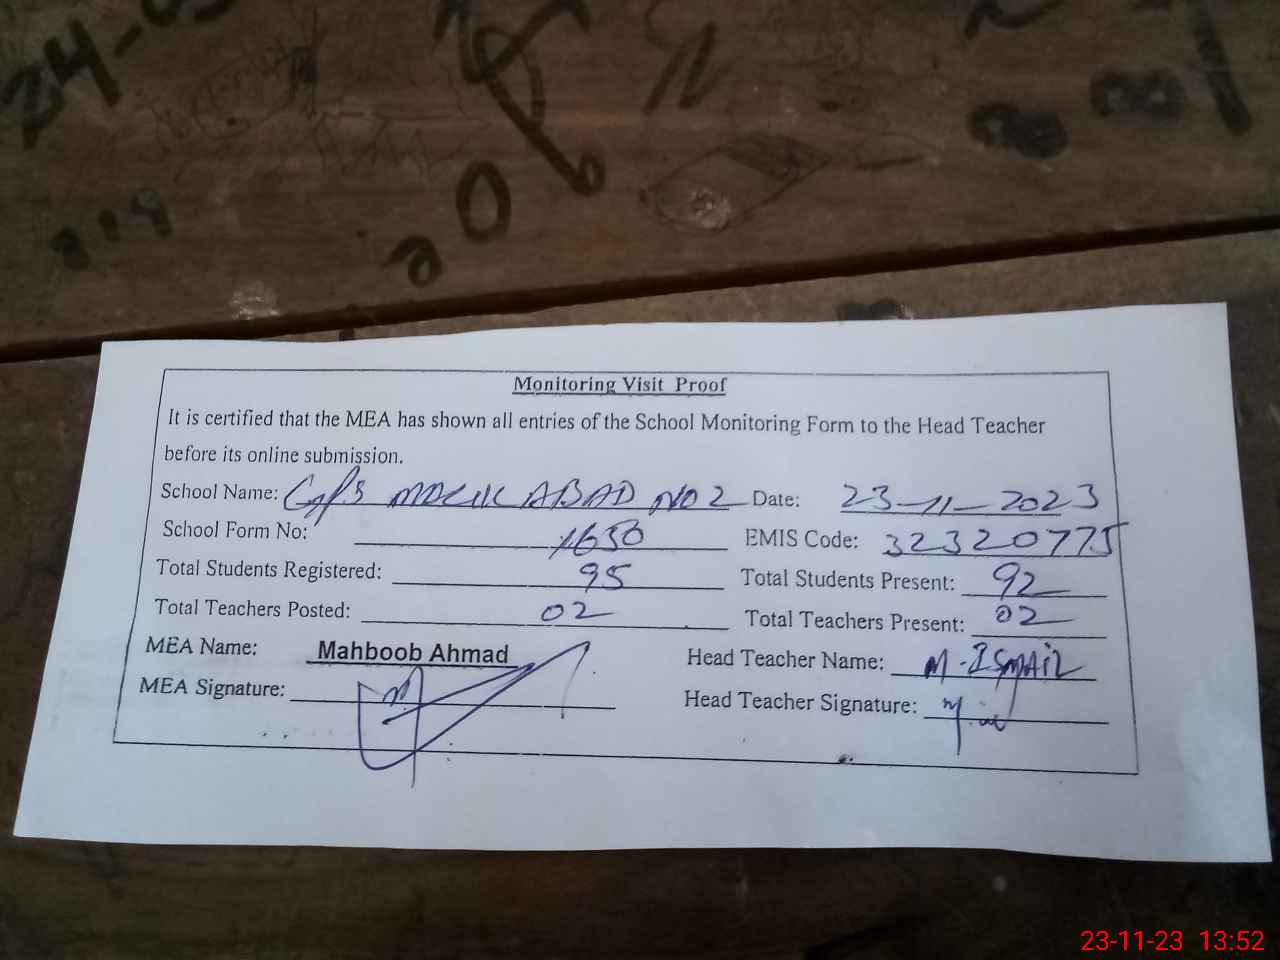 24-0
Monitoring Visit Proof
It is certified that the MEA has shown all entries of the School Monitoring Form to the Head Teacher
before its online submission.
School Name: G/P/S MALIK ABAD NO 2 Date: 23-11-2023
School Form No: 1650 EMIS Code: 32320775
Total Students Registered: 95 Total Students Present: 92
Total Teachers Posted: 02 Total Teachers Present: 02
MEA Name: Mahboob Ahmad Head Teacher Name: M-ISMAIL
MEA Signature: Head Teacher Signature:
23-11-23 13:52